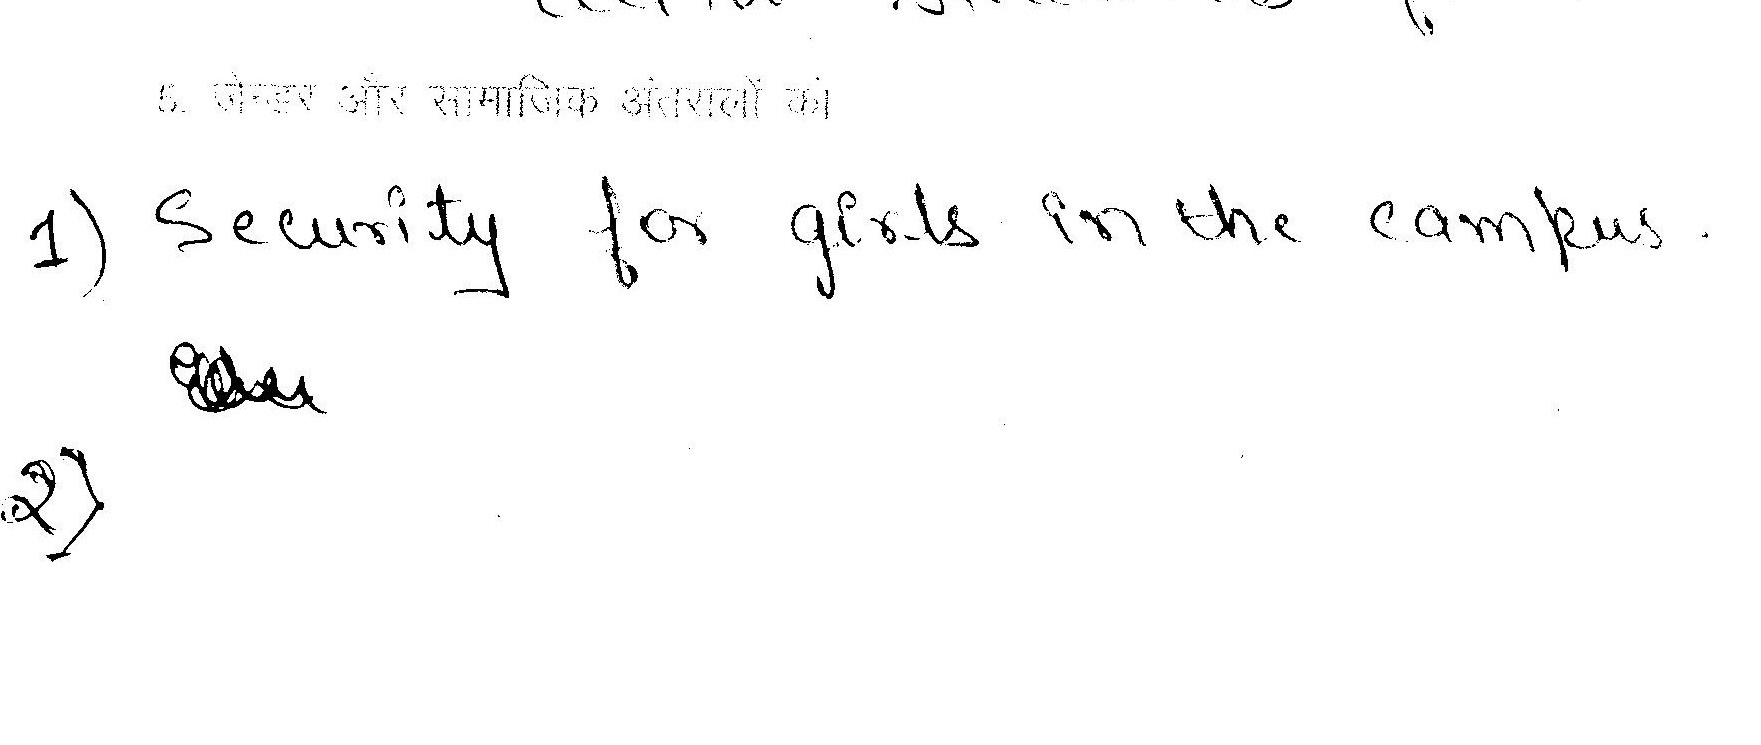 5. जेन्डर और सामाजिक अंतरालों को
1) Security for girls in the campus.
2)